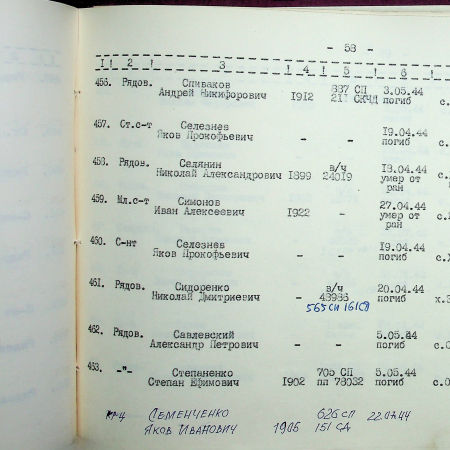 - 58 -
1! 2 ! 3 ! 4 ! 5 ! 6 !
456. Рядов. Спиваков 887 СП 3.05.44
Андрей Никифорович 1912 211 СКЧД погиб с.
457. Ст.с-т Селезнев 19.04.44
Яков Прокофьевич - - погиб с.
458. Рядов. Селянин в/ч 18.04.44
Николай Александрович 1899 24019 умер от с.
ран
459. Мл.с-т Симонов 27.04.44
Иван Алексеевич 1922 - умер от с.
ран
460. С-нт Селезнев 19.04.44
Яков Прокофьевич - - погиб с.Х
461. Рядов. Сидоренко в/ч 20.04.44
Николай Дмитриевич - 43986 погиб х.З
565 СП 161СД
462. Рядов. Савлевский 5.05.44
Александр Петрович - - погиб с.О
463. -"- Степаненко 705 СП 5.05.44
Степан Ефимович 1902 пп 78032 погиб с.О
Семенченко 626 СП 22.07.44
Яков Иванович 1906 151 СД